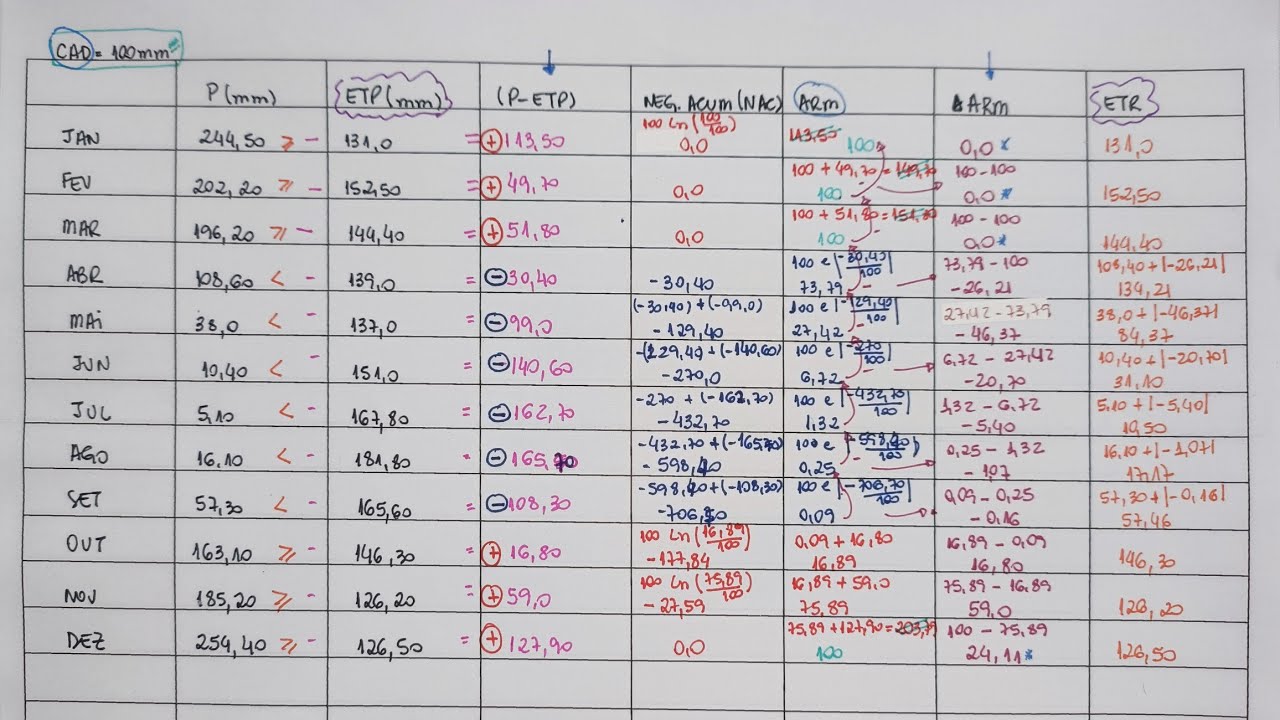 CAD = 100mm
P(mm) ETP(mm) (P-ETP) NEG. ACUM (NAC) ARm ΔARm ETR
JAN 244,50 ≥ - 131,0 = + 113,50 100 Ln(100/100) 113,50 0,0 * 131,0
0,0 100
FEV 202,20 ≥ - 152,50 = + 49,70 0,0 100 + 49,70 = 149,70 100-100 152,50
100 0,0 *
MAR 196,20 ≥ - 144,40 = + 51,80 0,0 100 + 51,80 = 151,80 100 - 100 144,40
100 0,0 *
ABR 108,60 < - 139,0 = - 30,40 -30,40 100 e |-30,40/100| 73,79 - 100 108,40 + |-26,21|
73,79 -26,21 134,21
MAi 38,0 < - 137,0 = - 99,0 (-30,40) + (-99,0) 100 e |-129,40/100| 27,42 - 73,79 38,0 + |-46,37|
-129,40 27,42 -46,37 84,37
JUN 10,40 < - 151,0 = - 140,60 -(129,40) + (-140,60) 100 e |-270/100| 6,72 - 27,42 10,40 + |-20,70|
-270,0 6,72 -20,70 31,10
JUL 5,10 < - 167,80 = - 162,70 -270 + (-162,70) 100 e |-432,70/100| 1,32 - 6,72 5,10 + |-5,40|
-432,70 1,32 -5,40 10,50
AGO 16,10 < - 181,80 = - 165,70 -432,70 + (-165,70) 100 e |-598,40/100| 0,25 - 1,32 16,10 + |-1,07|
-598,40 0,25 -1,07 17,17
SET 57,30 < - 165,60 = - 108,30 -598,40 + (-108,30) 100 e |-706,70/100| 0,09 - 0,25 57,30 + |-0,16|
0,09 -0,16 57,46
OUT 163,10 ≥ - 146,30 = + 16,80 100 Ln(16,89/100) 0,09 + 16,80 16,89 - 0,09 146,30
-177,84 16,89 16,80
NOV 185,20 ≥ - 126,20 = + 59,0 100 Ln(75,89/100) 16,89 + 59,0 75,89 - 16,89 126,20
-27,59 75,89 59,0
DEZ 254,40 ≥ - 126,50 = + 127,90 0,0 75,89 + 127,90 = 203,79 100 - 75,89 126,50
100 24,11 *